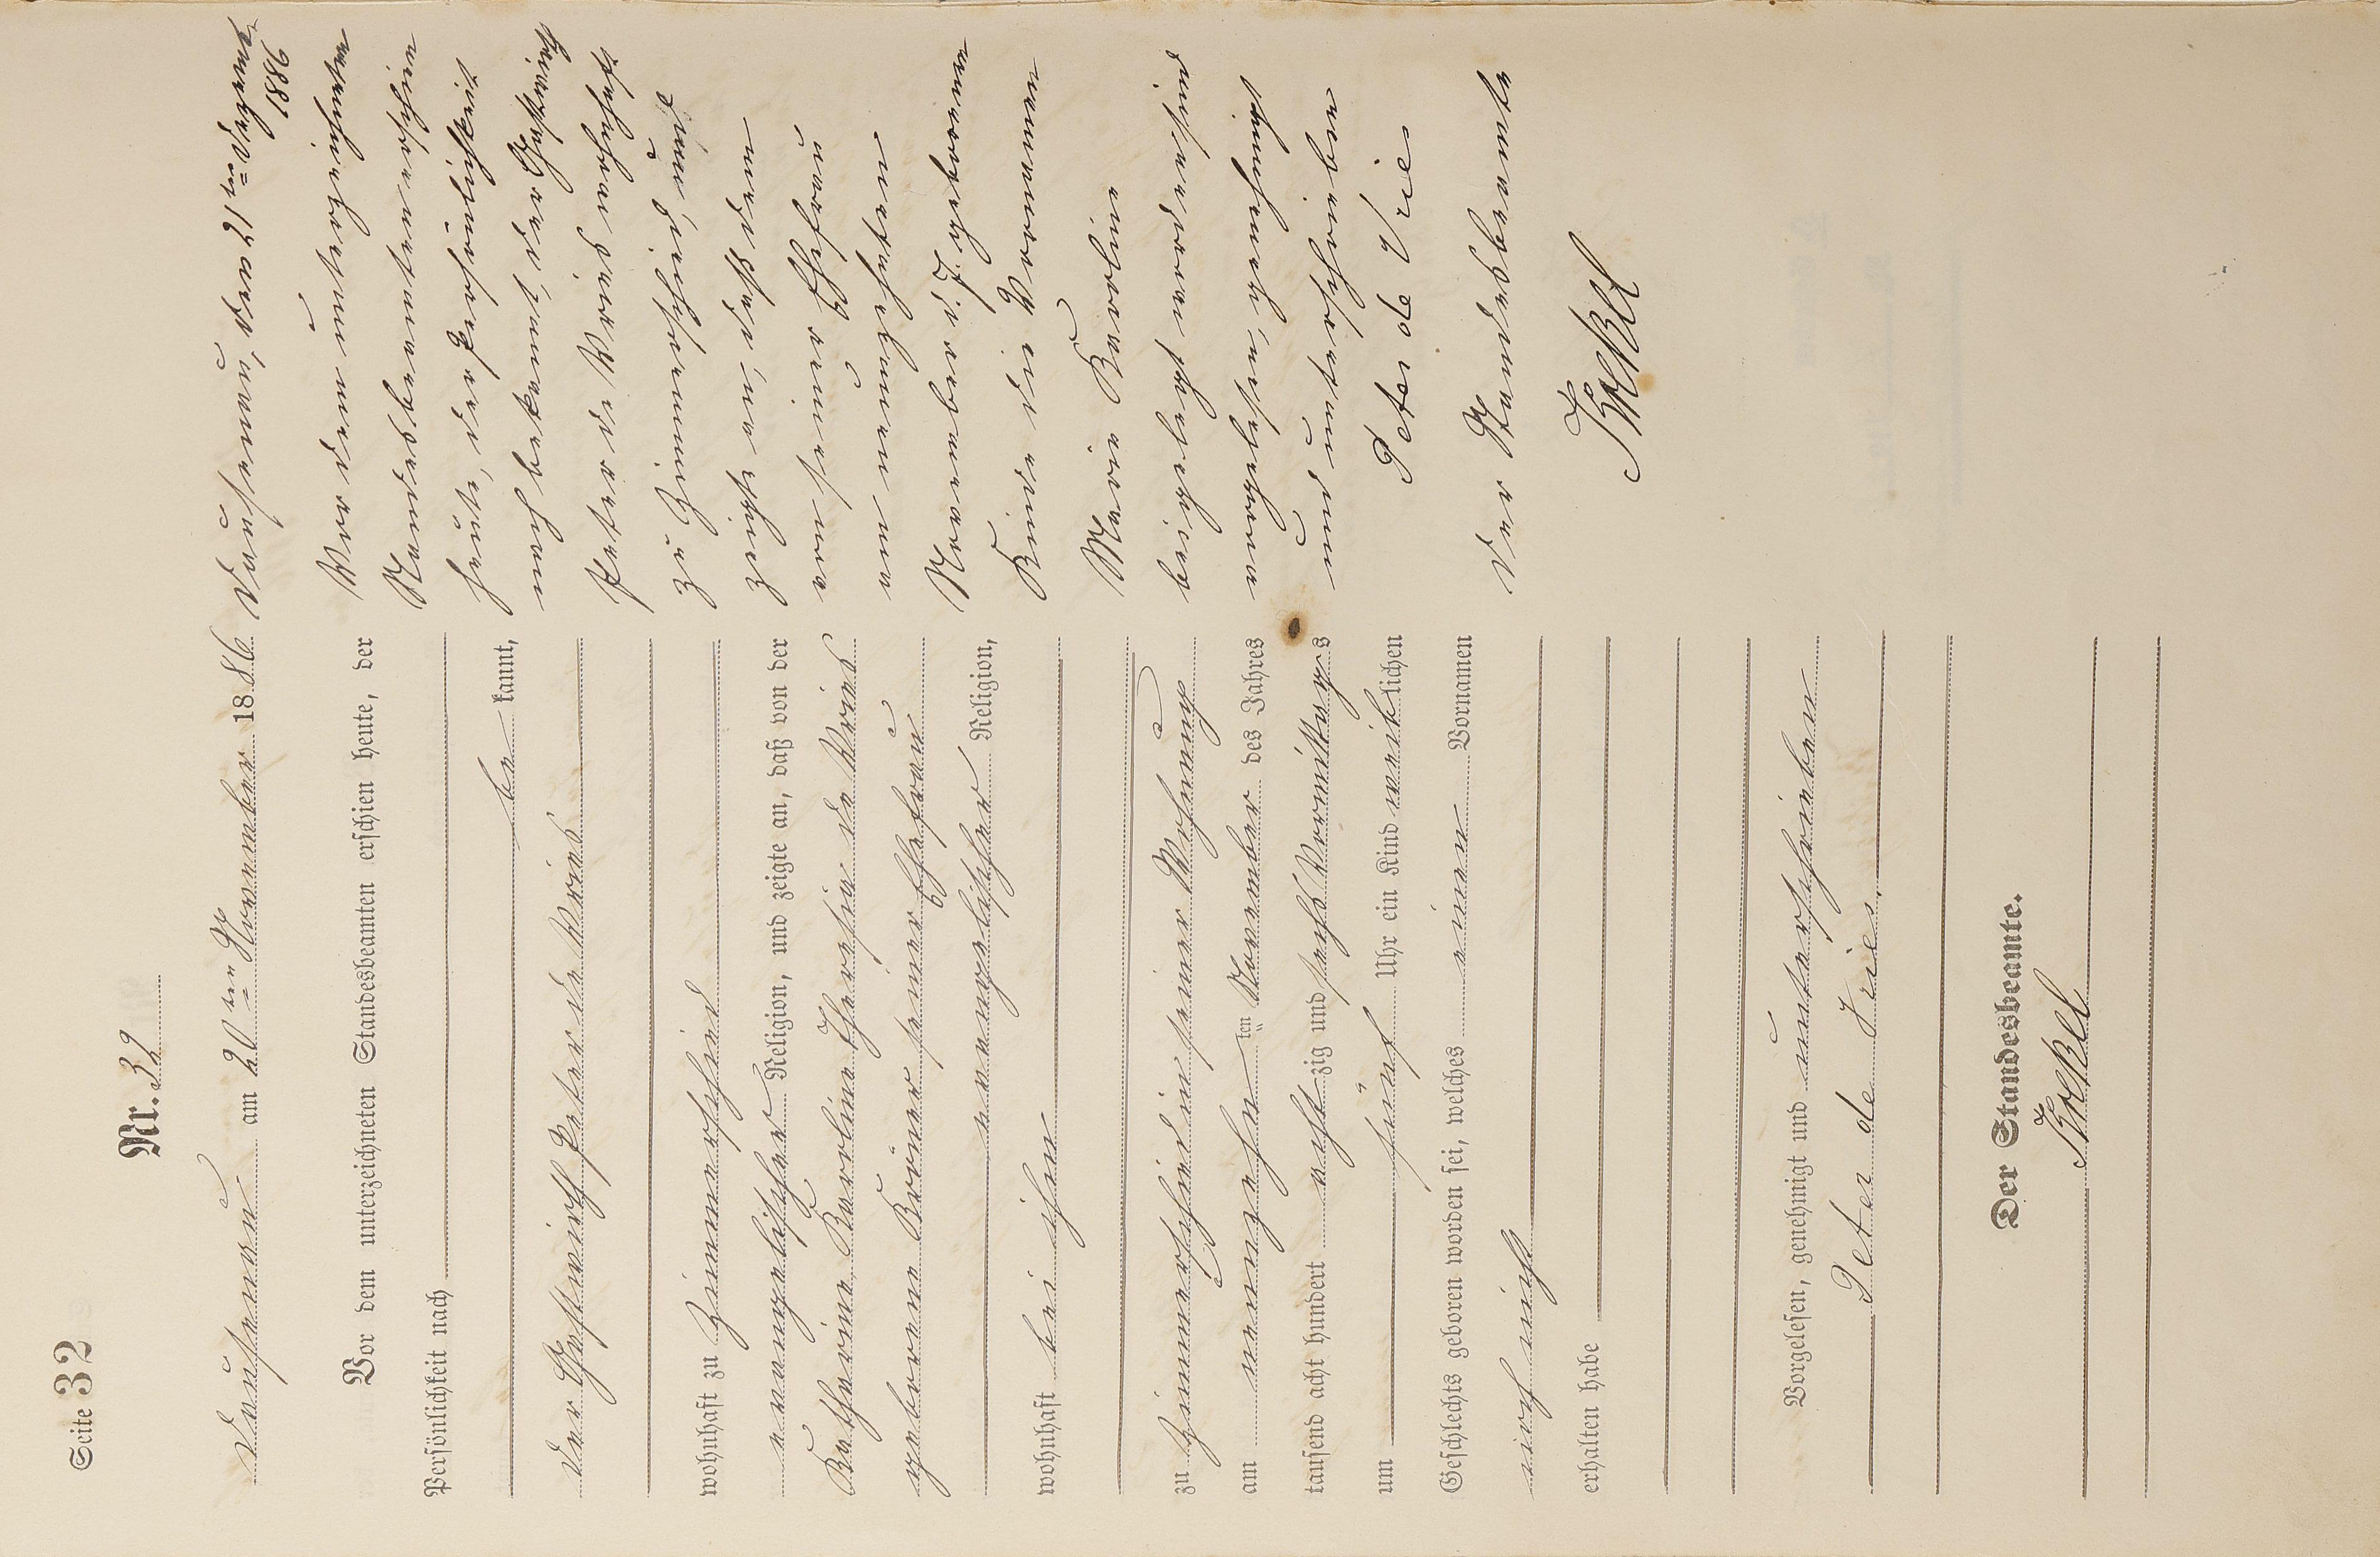 Seite 32
Nr. 32
Dausenau am 20ten November 1886
Vor dem unterzeichneten Standesbeamten erschien heute, der
Persönlichkeit nach
bekannt,
der Gastwirth Peter de Vries
wohnhaft zu Zimmerschied
evangelischer Religion, und zeigte an, daß von der
Katharine Karoline Theresia de Vries
geborene Körner seiner Ehefrau
evangelischer Religion,
wohnhaft bei ihm
zu Zimmerschied in seiner Wohnung
am neunzehnten November des Jahres
tausend acht hundert achtzig und sechs Vormittags
um fünf Uhr ein Kind weiblichen
Geschlechts geboren worden sei, welches einen Vornamen
noch nicht
erhalten habe
Vorgelesen, genehmigt und unterschrieben
Peter de Vries.
Der Standesbeamte.
Dausenau, den 21ten Dezember
1886
Vor dem unterzeichneten
Standesbeamten erschien
heute, der Persönlichkeit
nach bekannt, der Gastwirth
Peter de Vries wohnhaft
zu Zimmerschied, und
zeigte an, daß dem
von seiner Ehefrau
am neunzehnten
November d. J. geborenen
Kinde die Vornamen
Marie Karoline
beigelegt worden sind
vorgelesen, genehmigt
und unterschrieben
Peter de Vries
Der Standesbeamte